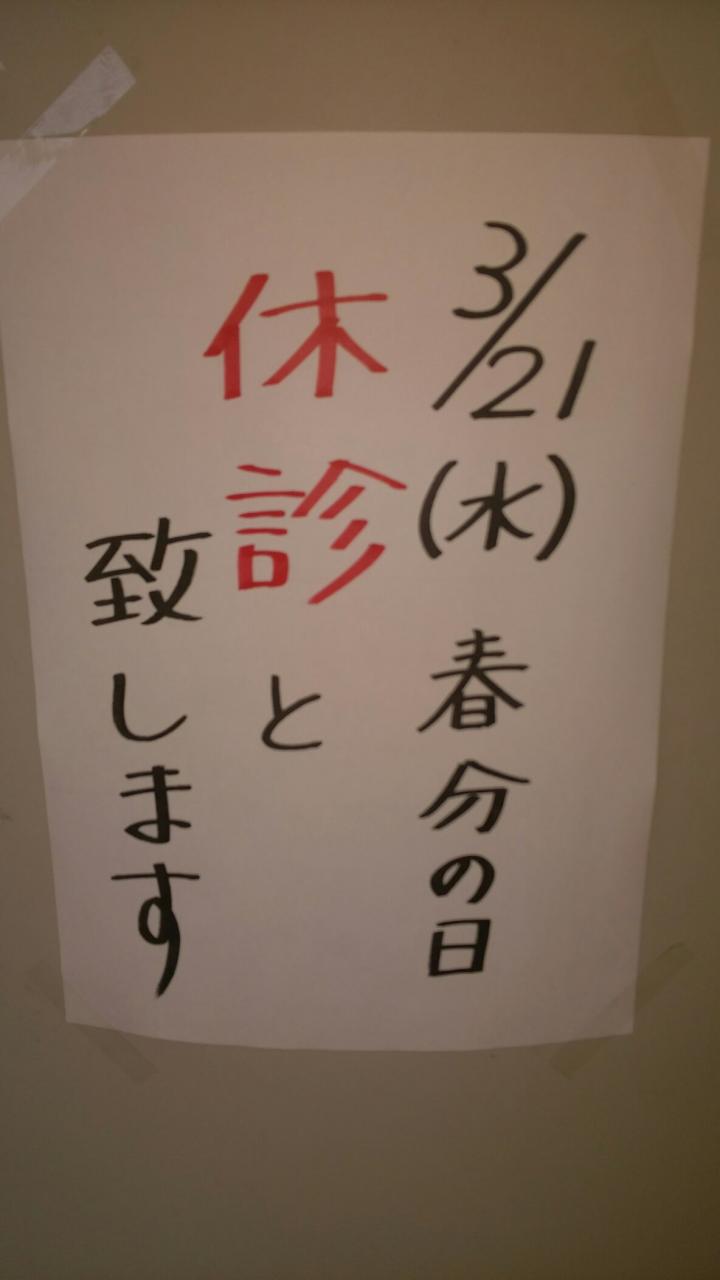 3/21(水)春分の日
休診と
致します